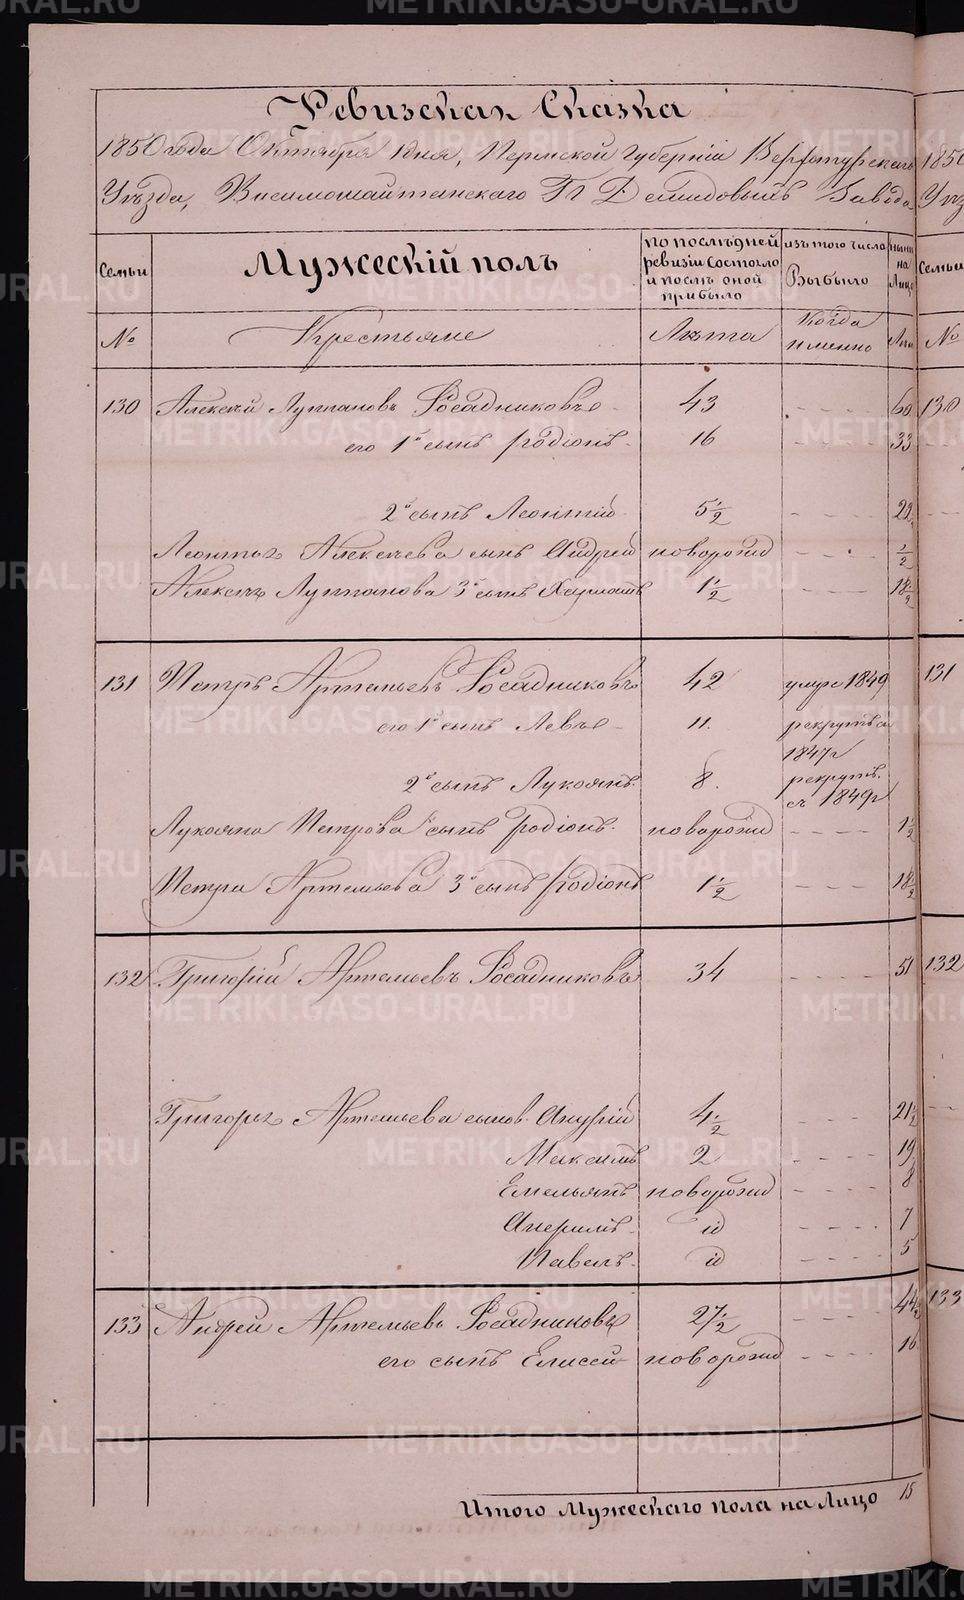 Ревизская Сказка
1850 года Октября дня, Пермской Губерніи Верхотурскаго
Уѣзда, Висимошайтанскаго П Демидовыхъ Завода
Семьи
Мужескій полъ
по послѣдней
ревизіи Состояло
и послѣ оной
прибыло
изъ того числа
Выбыло
нынѣ
на
Лицо
№
Крестьяне
Лѣта
Когда
именно
Лѣта
130 Алексѣй Луппановъ Росадниковъ 43 - - - - 60
его 1й сынъ Родіонъ 16 - - - - 33
2й сынъ Леонтій 5½ - - - - 22
Леонтья Алексѣева сынъ Андрей новорожд - - - - ½
Алексѣя Луппанова 3й сынъ 1½ - - - - 18½
131 Петръ Артемьевъ Росадниковъ 42 умре 1849
его 1й сынъ Левъ 11. рекрутъ въ
1847г
2й сынъ Лукоянъ 8. рекрутъ.
съ 1849г
Лукояна Петрова сынъ Родіонъ. новорожд - - - - 1½
Петра Артемьева 3й сынъ Родіонъ 1½ - - - - 18½
132 Григорій Артемьевъ Росадниковъ 34 - - - - 51
Григорья Артемьева сынов. 4½ - - 21½
Максимъ 2 - - - - 19
Емельянъ новорожд - - - - 8
id - - - - 7
Павелъ. id - - - - 5
133 Андрей Артемьевъ Росадниковъ 27½ - - - - 44½
его сынъ Елисей новорожд - - - - 16
Итого Мужескаго пола на Лицо 15
1850
Уѣз
Семьи
№
130
131
132
133
METRIKI.GASO-URAL.RU